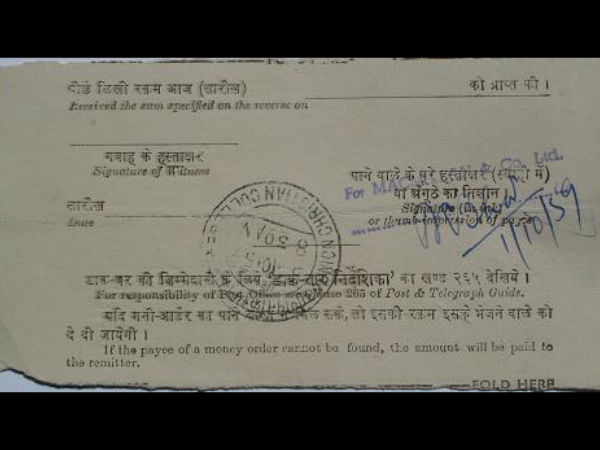 पीछे लिखी रक़म आज (तारीख) को प्राप्त की ।
Received the sum specified on the reverse on
गवाह के हस्ताक्षर
Signature of Witness
पाने वाले के पूरे हस्ताक्षर (स्याही में)
या अँगूठे का निशान ।
For & Co. Ltd.
Signature (in ink)
or thumb-impression of payee
तारीख
Date
1/10/59
CHRISTIAN COLLEGE
डाक-घर की जिम्मेदारी के लिये 'डाक-तार निर्देशिका' का खण्ड २६५ देखिये ।
For responsibility of Post Office see clause 265 of Post & Telegraph Guide.
यदि मनी-आर्डर का पाने वाला न मिल सके, तो इसकी रक़म इसके भेजने वाले को
दे दी जायेगी ।
If the payee of a money order cannot be found, the amount will be paid to
the remitter.
FOLD HERE